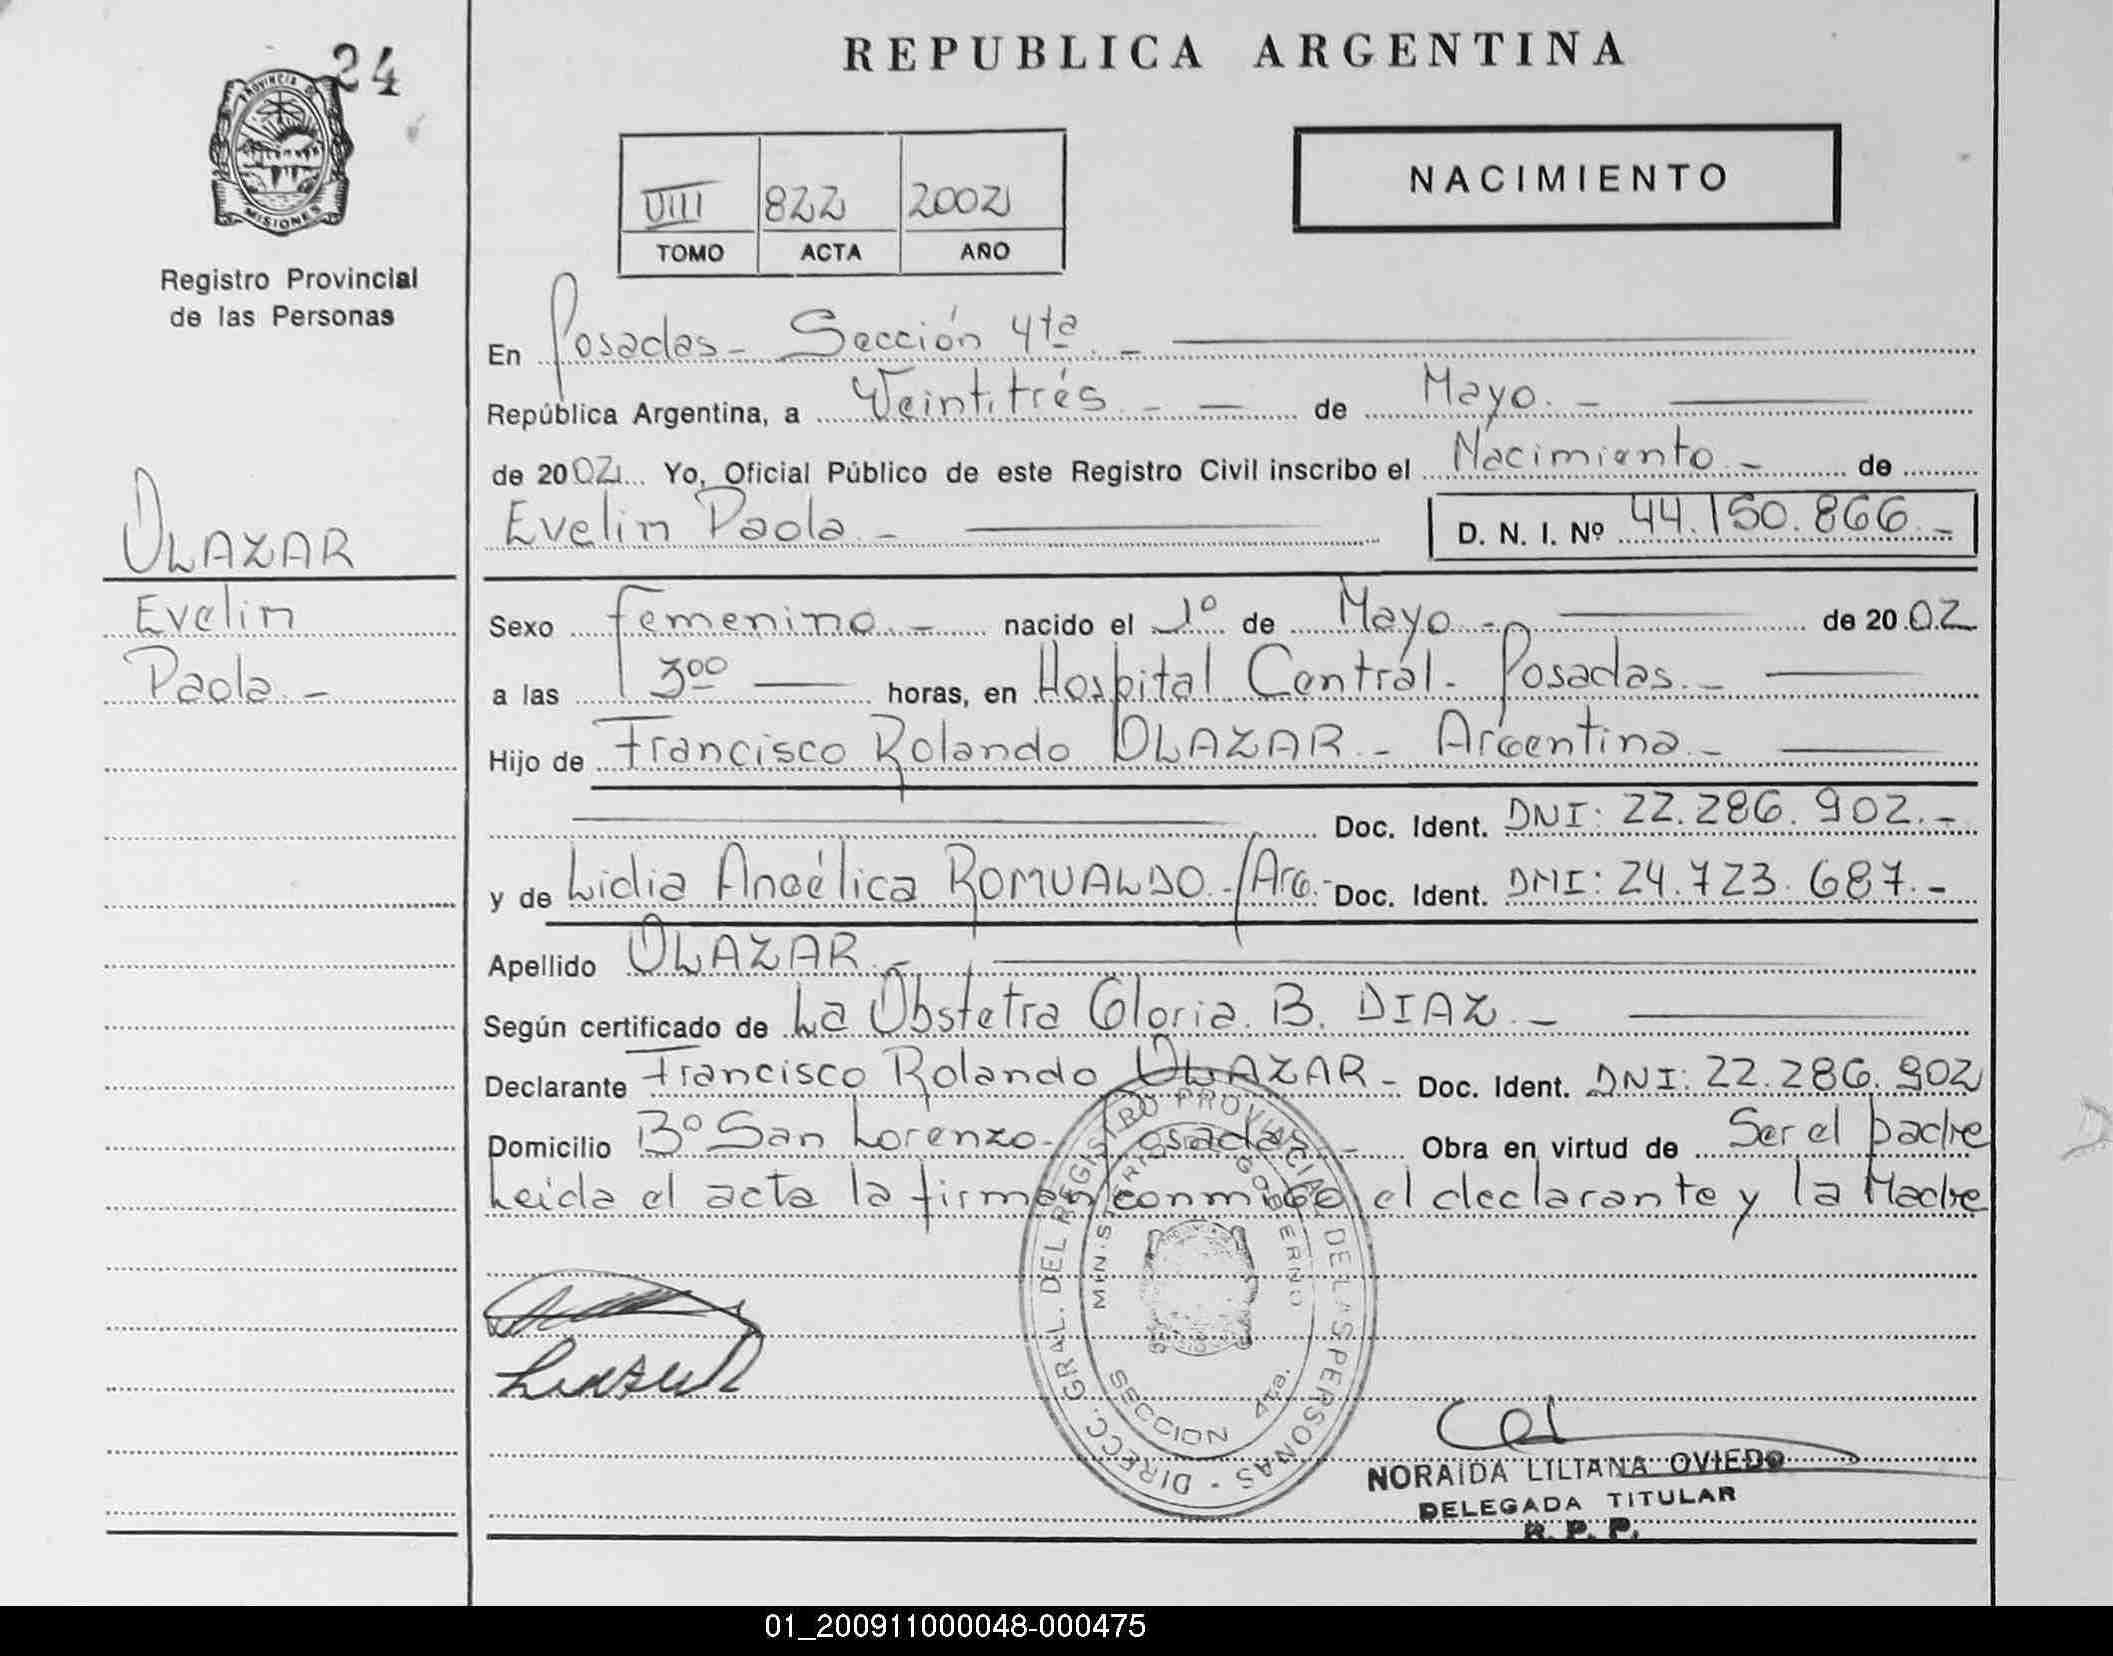 24
PROVINCIA DE
MISIONES
Registro Provincial
de las Personas
OLAZAR
Evelin
Paola.-
REPUBLICA ARGENTINA
VIII 822 2002
TOMO ACTA AÑO
NACIMIENTO
En Posadas - Sección 4ta.-
República Argentina, a Veintitrés.- - de Mayo.-
de 2002 Yo, Oficial Público de este Registro Civil inscribo el Nacimiento.- de
Evelin Paola.- D. N. I. Nº 44.150.866.-
Sexo femenino.- nacido el 1º de Mayo.- de 2002
a las 3ºº horas, en Hospital Central - Posadas.-
Hijo de Francisco Rolando OLAZAR - Argentina.-
Doc. Ident. DNI: 22.286.902.-
y de Lidia Angélica ROMUALDO.-/Arg.- Doc. Ident. DNI: 24.723.687.-
Apellido OLAZAR.-
Según certificado de La Obstetra Gloria. B. DIAZ.-
Declarante Francisco Rolando OLAZAR - Doc. Ident. DNI: 22.286.902
Domicilio Bº San Lorenzo - Posadas.- Obra en virtud de Ser el padre
Leida el acta la firman conmigo el declarante y la Madre
DIRECC. GRAL. DEL REGISTRO PROVINCIAL DE LAS PERSONAS -
MINISTERIO GOBIERNO
SECCION 4ta.
NORAIDA LILIANA OVIEDO
DELEGADA TITULAR
R. P. P.
01_200911000048-000475